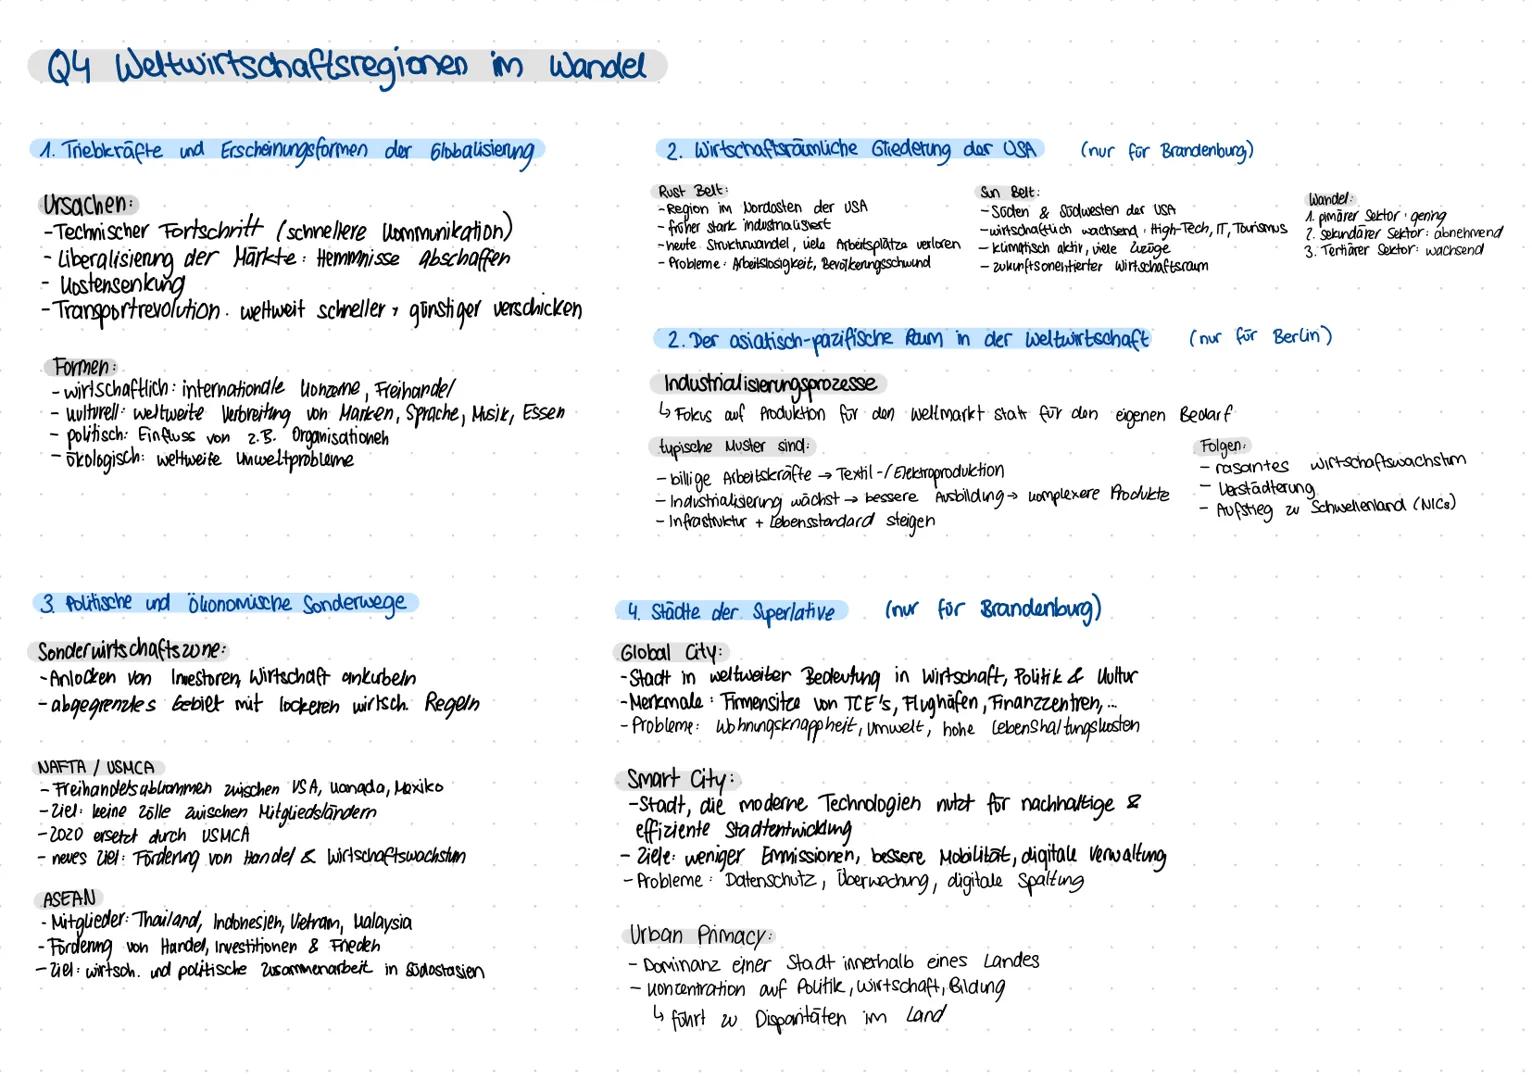 Q4 Weltwirtschaftsregionen im Wandel
1. Triebkräfte und Erscheinungsformen der Globalisierung
Ursachen:
- Technischer Fortschritt (schnellere Kommunikation)
- Liberalisierung der Märkte: Hemmnisse abschaffen
- Kostensenkung
- Transportrevolution: weltweit schneller, günstiger verschicken
Formen:
- wirtschaftlich: internationale Konzerne, Freihandel
- kulturell: weltweite Verbreitung von Marken, Sprache, Musik, Essen
- politisch: Einfluss von z.B. Organisationen
- ökologisch: weltweite Umweltprobleme
2. Wirtschaftsräumliche Gliederung der USA (nur für Brandenburg)
Rust Belt:
- Region im Nordosten der USA
- früher stark industrialisiert
- heute Strukturwandel, viele Arbeitsplätze verloren
- Probleme: Arbeitslosigkeit, Bevölkerungsschwund
Sun Belt:
- Süden & Südwesten der USA
- wirtschaftlich wachsend: High-Tech, IT, Tourismus
- klimatisch aktiv, viele Zuzüge
- zukunftsorientierter Wirtschaftsraum
Wandel:
1. pimärer Sektor: gering
2. sekundärer Sektor: abnehmend
3. Tertiärer Sektor: wachsend
2. Der asiatisch-pazifische Raum in der Weltwirtschaft (nur für Berlin)
Industrialisierungsprozesse
↳ Fokus auf Produktion für den Weltmarkt statt für den eigenen Bedarf
typische Muster sind:
- billige Arbeitskräfte → Textil-/Elektroproduktion
- Industrialisierung wächst → bessere Ausbildung → komplexere Produkte
- Infrastruktur + Lebensstandard steigen
Folgen:
- rasantes Wirtschaftswachstum
- Verstädterung
- Aufstieg zu Schwellenland (NICs)
3. Politische und ökonomische Sonderwege
Sonderwirtschaftszone:
- Anlocken von Investoren, Wirtschaft ankurbeln
- abgegrenztes Gebiet mit lockeren wirtsch. Regeln
NAFTA / USMCA
- Freihandelsabkommen zwischen USA, Kanada, Mexiko
- Ziel: keine Zölle zwischen Mitgliedsländern
- 2020 ersetzt durch USMCA
- neues Ziel: Förderung von Handel & Wirtschaftswachstum
ASEAN
- Mitglieder: Thailand, Indonesien, Vietnam, Malaysia
- Förderung von Handel, Investitionen & Frieden
- Ziel: wirtsch. und politische Zusammenarbeit in Südostasien
4. Städte der Superlative (nur für Brandenburg)
Global City:
- Stadt in weltweiter Bedeutung in Wirtschaft, Politik & Kultur
- Merkmale: Firmensitze von TCE's, Flughäfen, Finanzzentren, ...
- Probleme: Wohnungsknappheit, Umwelt, hohe Lebenshaltungskosten
Smart City:
- Stadt, die moderne Technologien nutzt für nachhaltige &
effiziente Stadtentwicklung
- Ziele: weniger Emmissionen, bessere Mobilität, digitale Verwaltung
- Probleme: Datenschutz, Überwachung, digitale Spaltung
Urban Primacy:
- Dominanz einer Stadt innerhalb eines Landes
- Koncentration auf Politik, Wirtschaft, Bildung
↳ führt zu Disparitäten im Land